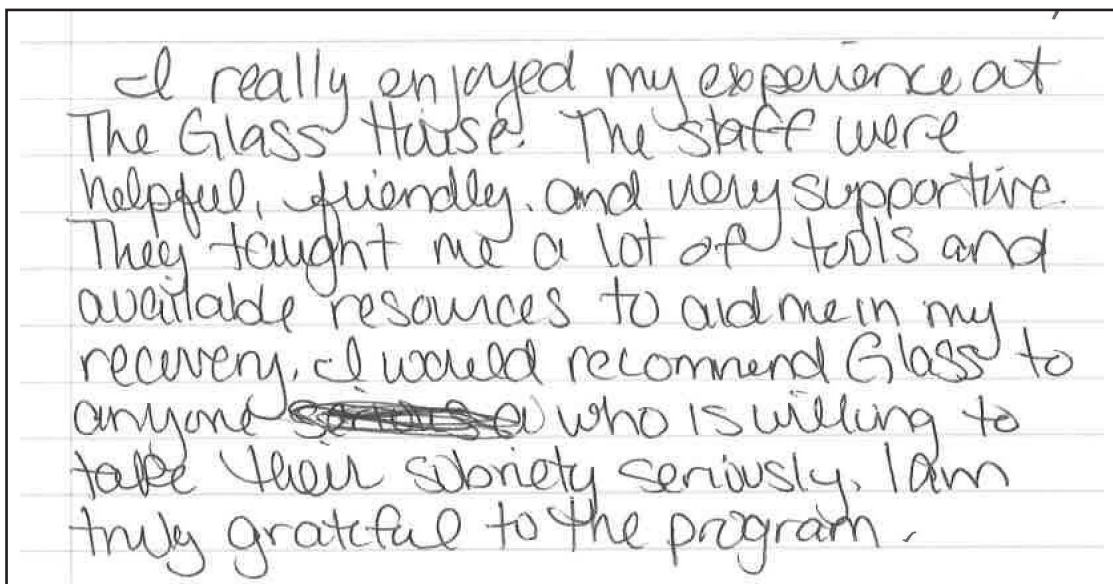 I really enjoyed my experience at
The Glass House. The staff were
helpful, friendly, and very supportive.
They taught me a lot of tools and
available resources to aid me in my
recovery. I would recommend Glass to
anyone who is willing to
take their sobriety seriously. I am
truly grateful to the program.